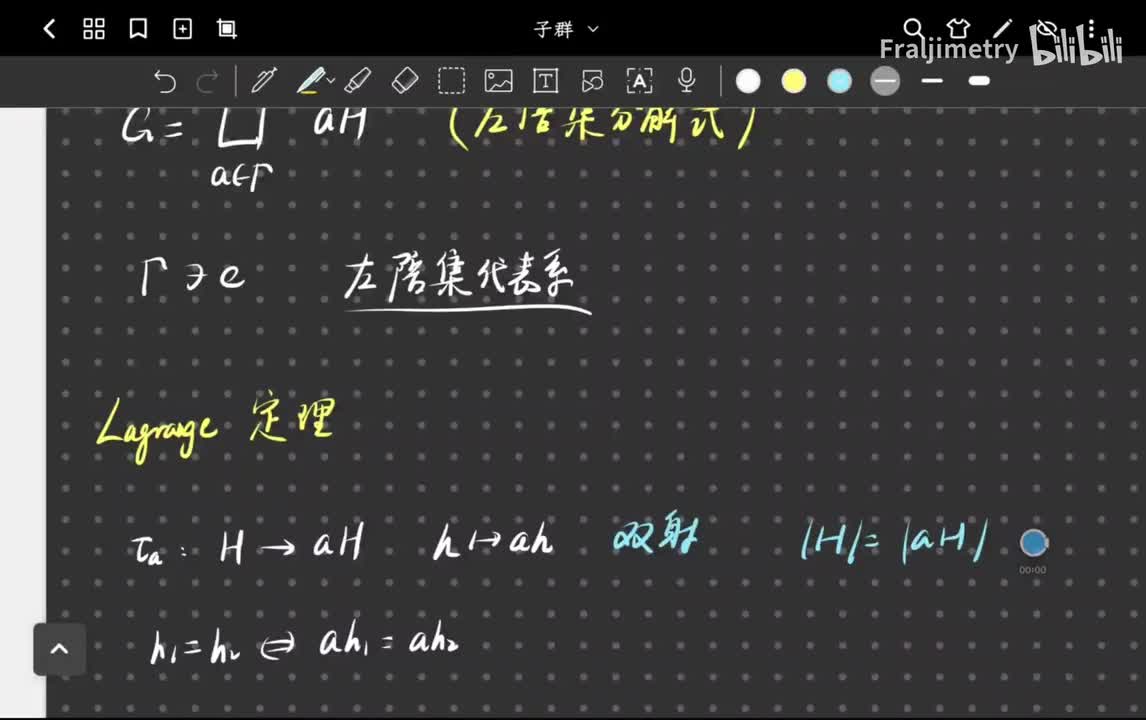 子群
Fraljimetry bilibili
G = ⊔ aH (左陪集分解式)
a∈Γ
Γ∋e 左陪集代表系
Lagrange 定理
τₐ : H → aH h ↦ ah 双射 |H| = |aH|
00:00
h₁ = h₂ ⇔ ah₁ = ah₂